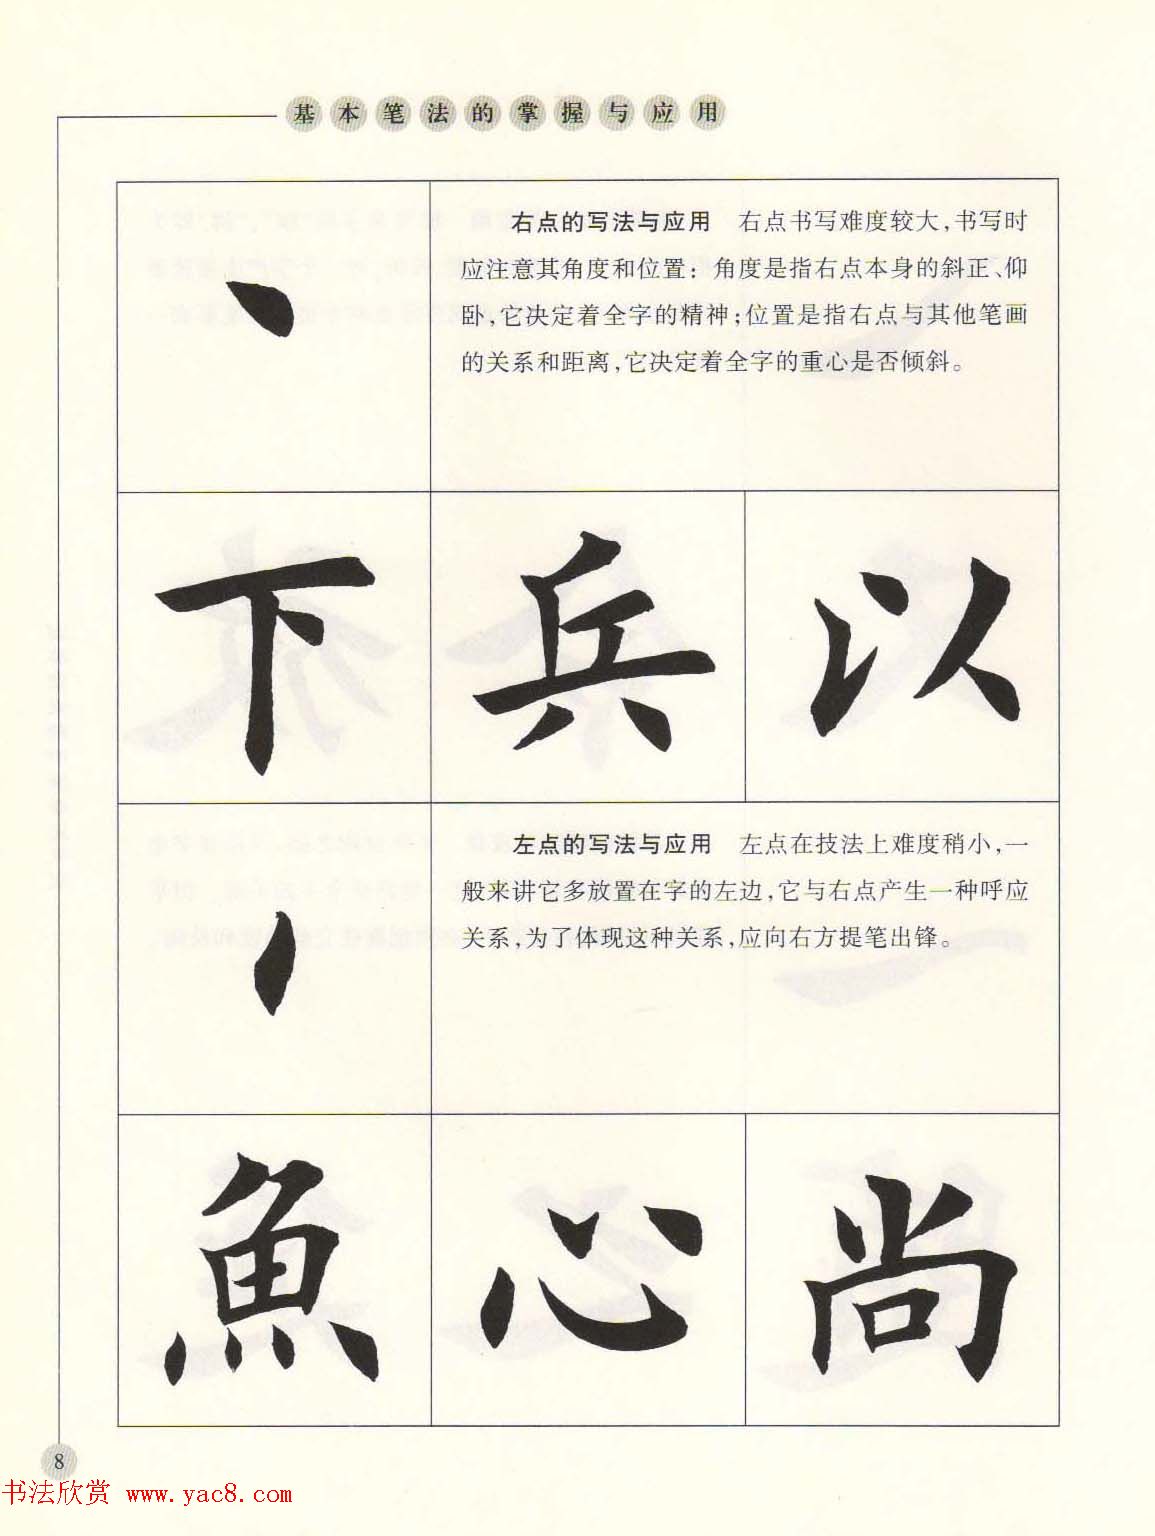 基本笔法的掌握与应用
右点的写法与应用　右点书写难度较大，书写时
应注意其角度和位置：角度是指右点本身的斜正、仰
卧，它决定着全字的精神；位置是指右点与其他笔画
的关系和距离，它决定着全字的重心是否倾斜。
下 兵 以
左点的写法与应用　左点在技法上难度稍小，一
般来讲它多放置在字的左边，它与右点产生一种呼应
关系，为了体现这种关系，应向右方提笔出锋。
魚 心 尚
8
书法欣赏 www.yac8.com